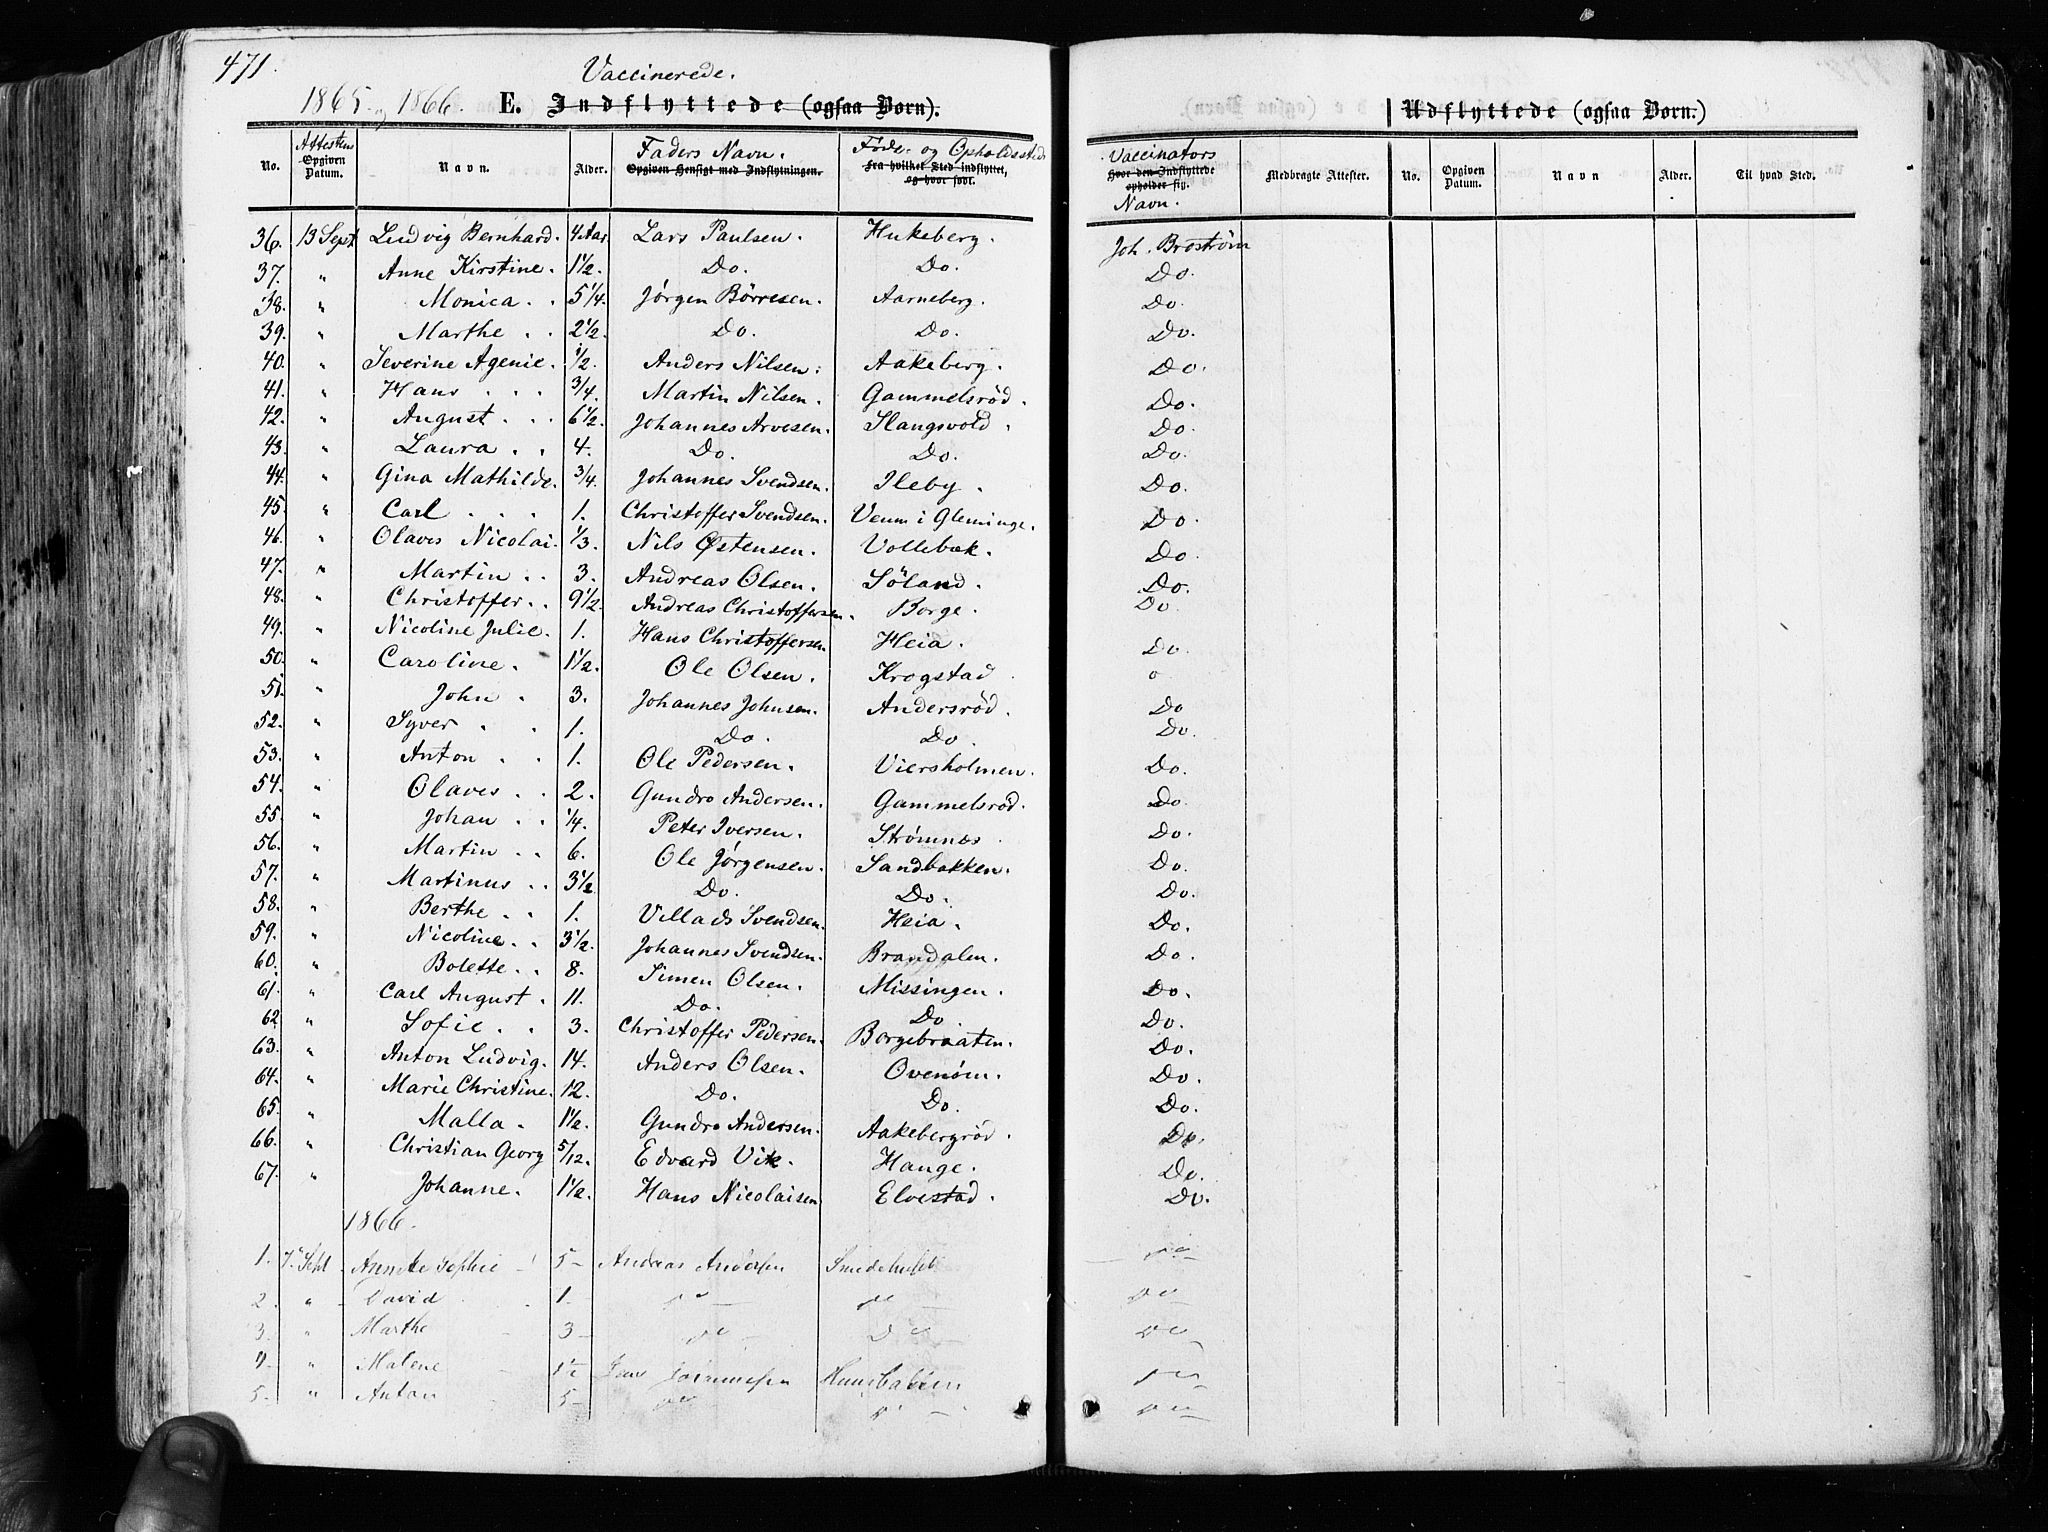 471.
Vaccinerede.
1865 og 1866. E. Indflyttede (ogsaa Børn). Udflyttede (ogsaa Børn.)
No. Attestens Opgiven Datum. Navn. Alder. Faders Navn. Opgiven Hensigt med Indflytningen. Føde- og Opholdssted Fra hvilket Sted indflyttet, og hvor født. Vaccinators Hvor den Indflyttede opholder sig. Navn. Medbragte Attester. No. Opgiven Datum. Navn Alder. Til hvad Sted.
36. 13 Sept Ludvig Bernhard. 4 Aar. Lars Paulsen. Hukeberg. Joh. Broström
37. " Anne Kirstine. 1½. Do. Do. Do.
38. " Monica . . 5¼. Jørgen Börresen. Aarneberg. Do.
39. " Marthe . . 2½. Do. Do. Do.
40. " Severine Agenie. ½. Anders Nilsen. Aakeberg. Do.
41. " Hans . . . ¾. Martin Nilsen. Gammelsröd. Do.
42. " August . . . 6½. Johannes Arvesen. Slangsvold. Do.
43. " Laura . . 4. Do. Do. Do.
44. " Gina Mathilde. ¾. Johannes Svendsen. Ileby. Do.
45. " Carl . . . 1. Christoffer Svendsen. Veum i Gleminge. Do.
46. " Olaves Nicolai. ⅓. Nils Østensen. Vollebæk. Do.
47. " Martin . . 3. Andreas Olsen. Söland. Do.
48. " Christoffer. . 9½. Andreas Christoffersen. Borge. Do.
49. " Nicoline Julie. 1. Hans Christoffersen Heia. Do.
50. " Caroline. 1½. Ole Olsen. Krogstad o
51. " John . 3. Johannes Johnsen. Andersröd. Do
52. " Syver . . 1. Do. Do. Do.
53. " Anton . . 1. Ole Pedersen. Viersholmen. Do.
54. " Olaves . . 2. Gundro Andersen. Gammelsröd. Do.
55. " Johan . . ¼. Peter Iversen. Strømnæs Do.
56. " Martin . . 6. Ole Jørgensen. Sandbakken. Do.
57. " Martinus . . 3½. Do. Do. Do.
58. " Berthe . . 1. Villads Svendsen. Heia. Do.
59. " Nicoline. . 3½. Johannes Svendsen. Brandalen. Do.
60. " Bolette. . 8. Simen Olsen. Missingen. Do.
61. " Carl August. 11. Do. Do. Do.
62 " Sofie. . 3. Christoffer Pedersen. Borgebraaten. Do.
63. " Anton Ludvig. 14. Anders Olsen. Ovenöm. Do.
64. " Marie Christine. 12. Do. Do. Do.
65. " Malla. 1½. Gundro Andersen. Aakebergröd. Do.
66. " Christian Georg 5/12. Edvard Vik. Hauge. Do.
67. " Johanne. 1½. Hans Nicolaisen Elvestad. Do.
1866.
1. 7 Sept Sophie 5 Andreas Andersen Smedehuset do
2. " David 1. do do do
3. " Marthe 3 do do do
4. " Malene 1½ do
5. " Anton 5 do do do